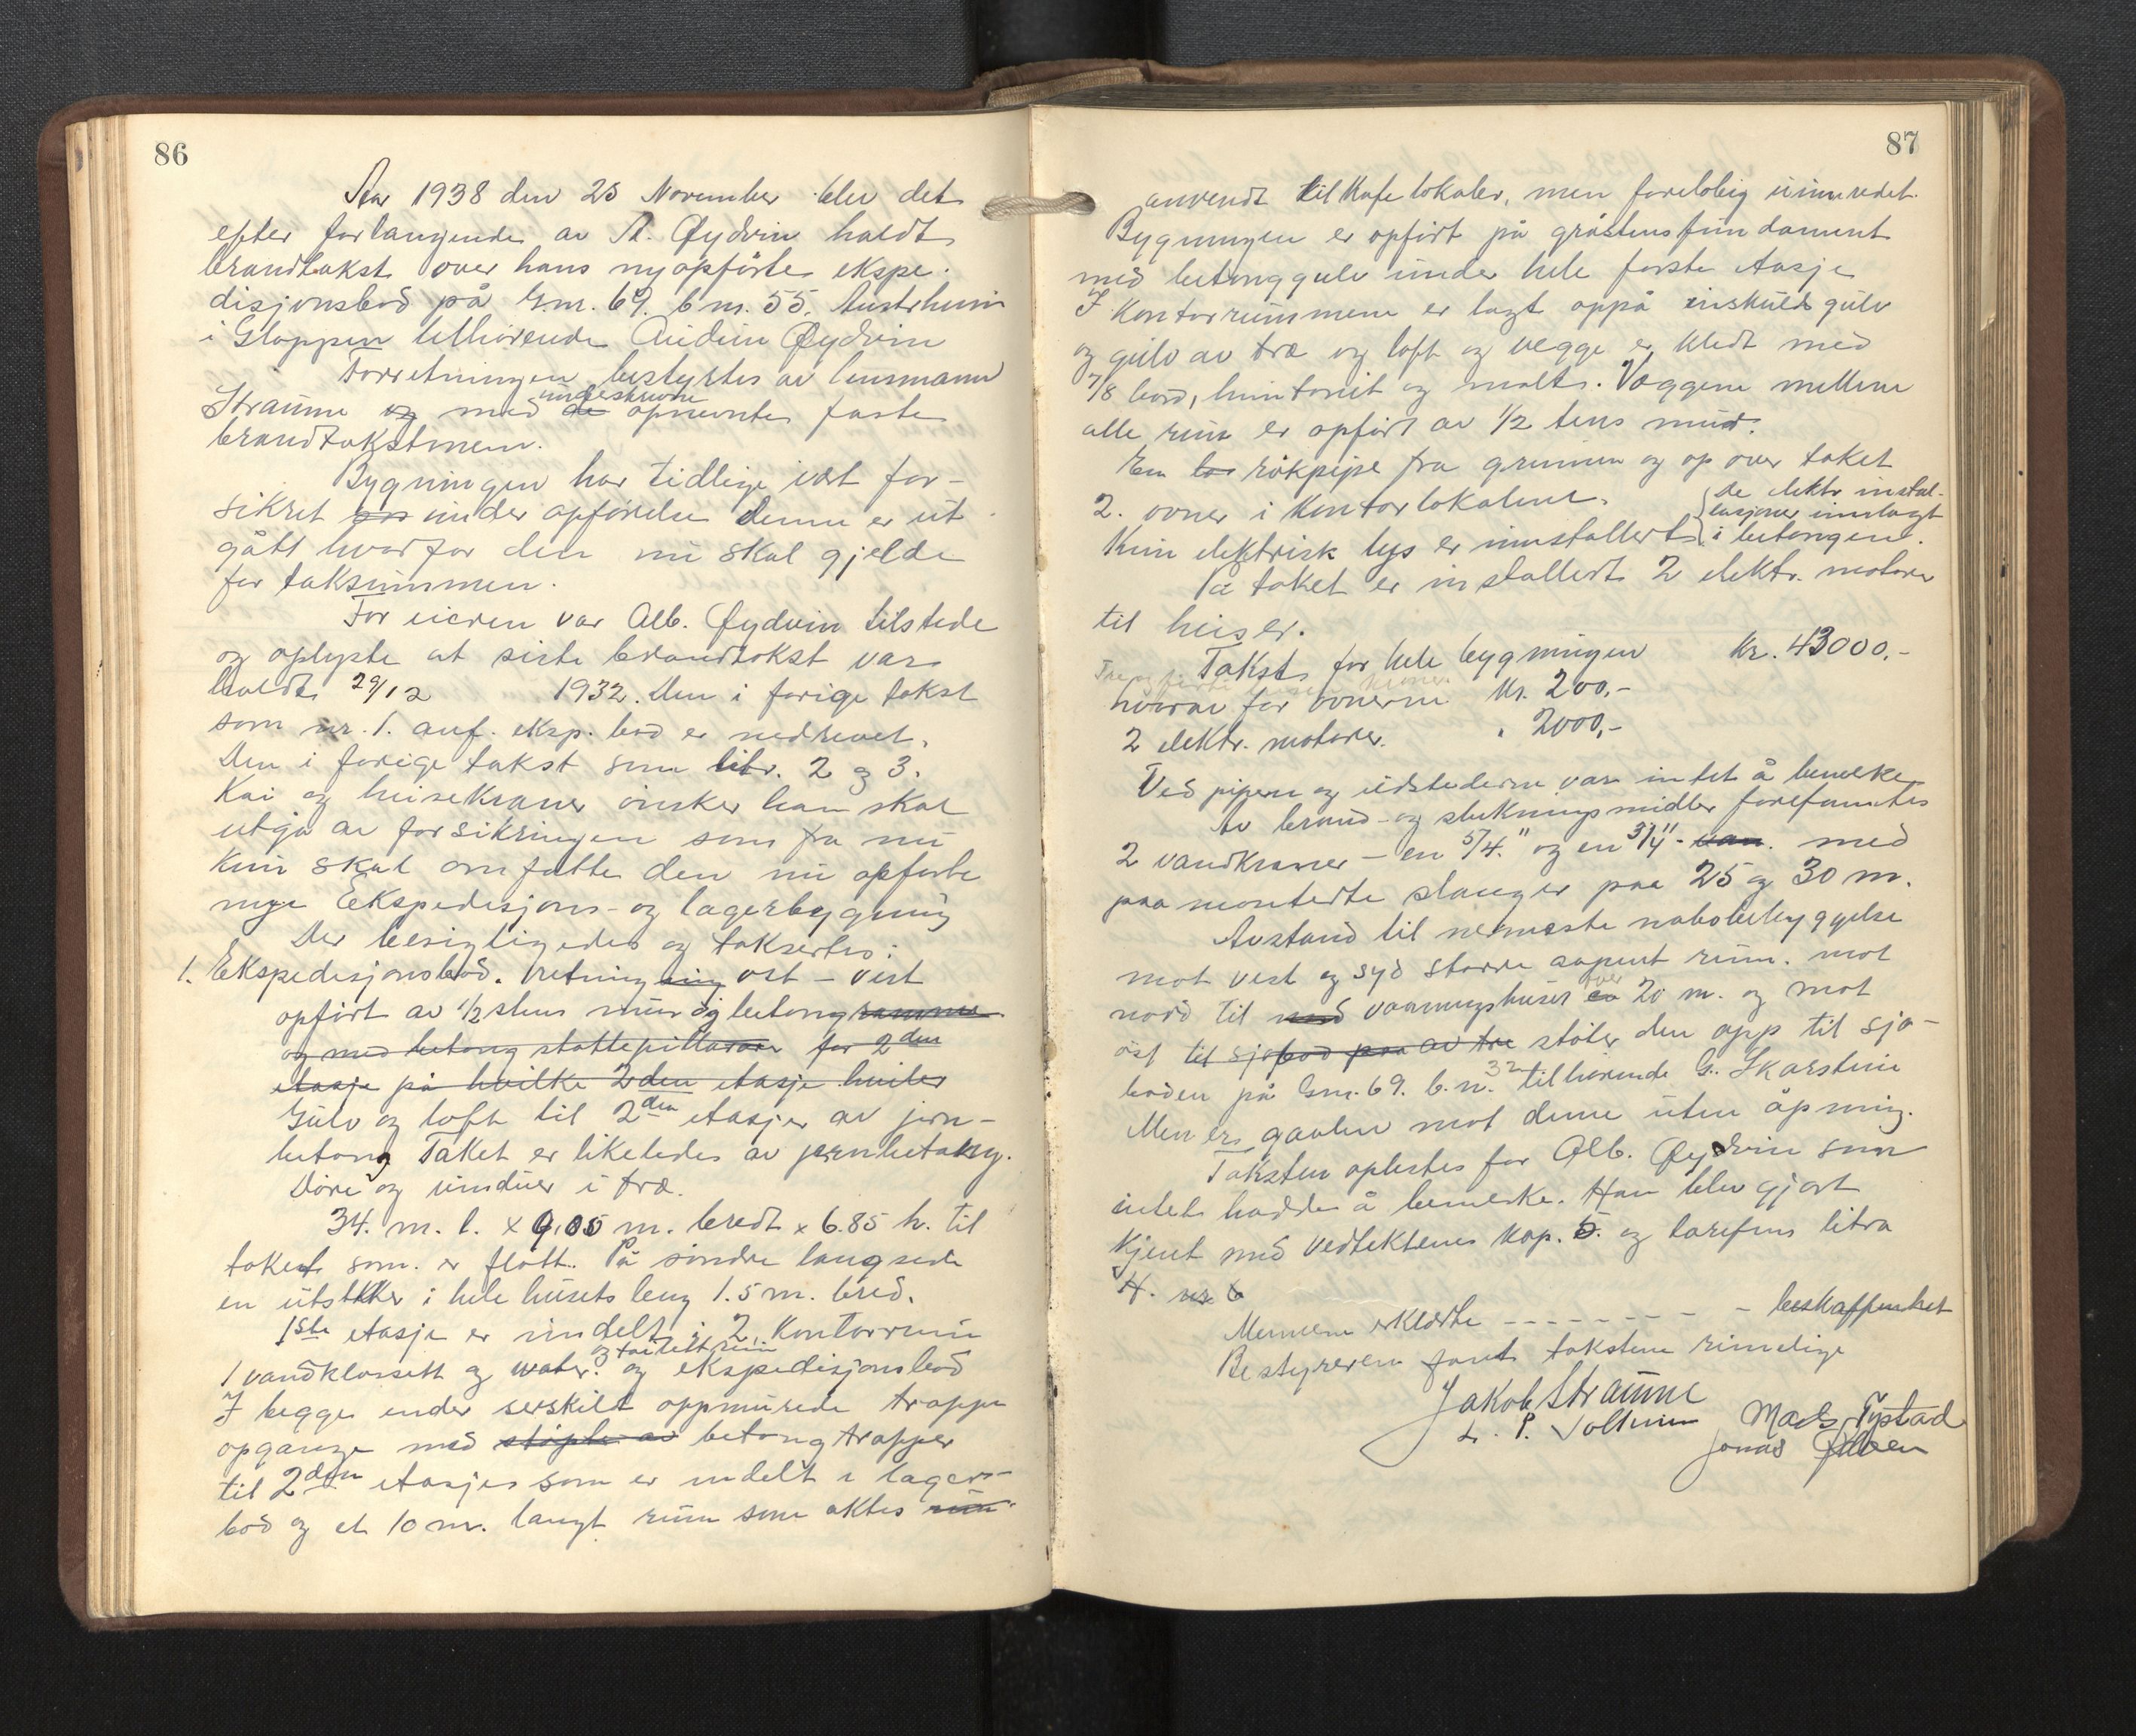 86
Aar 1938 den 25 November blev det
efter forlangende av A. Øydvin holdt
brandtakst over hans nyopførte ekspe-
disjonsbod på G.nr. 69. b nr. 55. Austrheim
i Gloppen tilhørende Audun Øydvin
Forretningen bestyrtes av lensmann
Straume og med de undeskrevne opnevnte faste
brandtakstmenn.
Bygningen har tidlige vært for-
sikret under opførelse denne er ut
gått hvorfor den nu skal gjelde
for taksummen.
For eieren var Alb. Øydvin tilstede
og oplyste at siste brandtakst var
holdt 29/12 1932. Den i forige takst
som nr. 1. anf. eksp. bod er nedrevet.
Den i forige takst som litr. 2 og 3.
Kai og heisekraner ønsker han skal
utgå av forsikringen som fra nu
kun skal omfatte den nu opførte
nye Ekspedisjons- og lagerbygning
Der besigtigedes og taksertes:
1. Ekspedisjonsbod. retning øst – vest
opført av 1/2 stens mur og betong ramme
og med betong støttepillarer for 2den
etasje på hvilke 2den etasje hviler
Gulv og loft til 2den etasje av jern-
betong Taket er likeledes av jernbetong.
Dører og vinduer i træ.
34. m. l. x 9,05 m. bredt x 6.85 h. til
taket som er flatt. På søndre langside
en utstikker i hele husets leng 1.5 m. bred.
1ste etasje er inndelt i 2 Kontorrum
1 vandklossett og water. og toilettrum og ekspedisjonsbod
I begge ender serskilt oppmurede trappe
opgange med støpte av betong trapper
til 2den etasje som er indelt i lager-
bod og et 10 m. langt rum som aktes rum
87
anvendt til Kafe lokaler, men foreløbig uinnredet.
Bygningen er opført på gråstensfundament
med betonggulv under hele første etasje
I Kontorrummene er lagt oppå innskudsgulv
og gulv av træ og loft og vegge er kledt med
7/8 bord, huntonit og malte. Væggene mellem
alle rum er opført av 1/2 stens mur.
En røkpipe fra grunnen og op over taket
2. ovner i Kontorlokalene.
De elektr instal-
lasjoner innlagt
Kun elektrisk lys er innstallert i betongen.
På taket er installert 2 elektr. motorer
til heiser.
Takst for hele bygningen Kr. 43000.-
hvorav for ovnerne Kr. 200,-
2 elektr. motorer. " 2000,-
Ved pipen og ildstederne var intet å bemerke
Av brand- og slukningsmidler forefanntes
2 vandkraner – en 5/4" og en 3/4" - van. med
paamonterte slanger paa 25 og 30 m.
Avstand til nermeste nabobebyggelse
mot vest og syd større aapent rum. mot
nord til med vaaningshuset er over 20 m. og mot
øst til sjøbod paa av tre støter den opp til sjø-
boden på Gnr. 69. b.n. 32 tilhørende G. Skarstein
Men er gavlen mot denne uten åpning.
Taksten oplestes for Alb. Øydvin som
intet hadde å bemerke. Han blev gjort
kjent med vedtektenes kap. 5. og tarifens litra
H. nr 6
Mennene erklærte - - - - - - - - beskaffenhet
Bestyreren fant taksten rimelige
Jakob Straume
L. P. Solheim Mads Tystad
Jonas